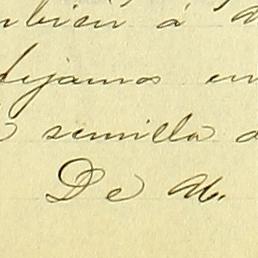 mbien á
dejamos en
semilla
De Ab.